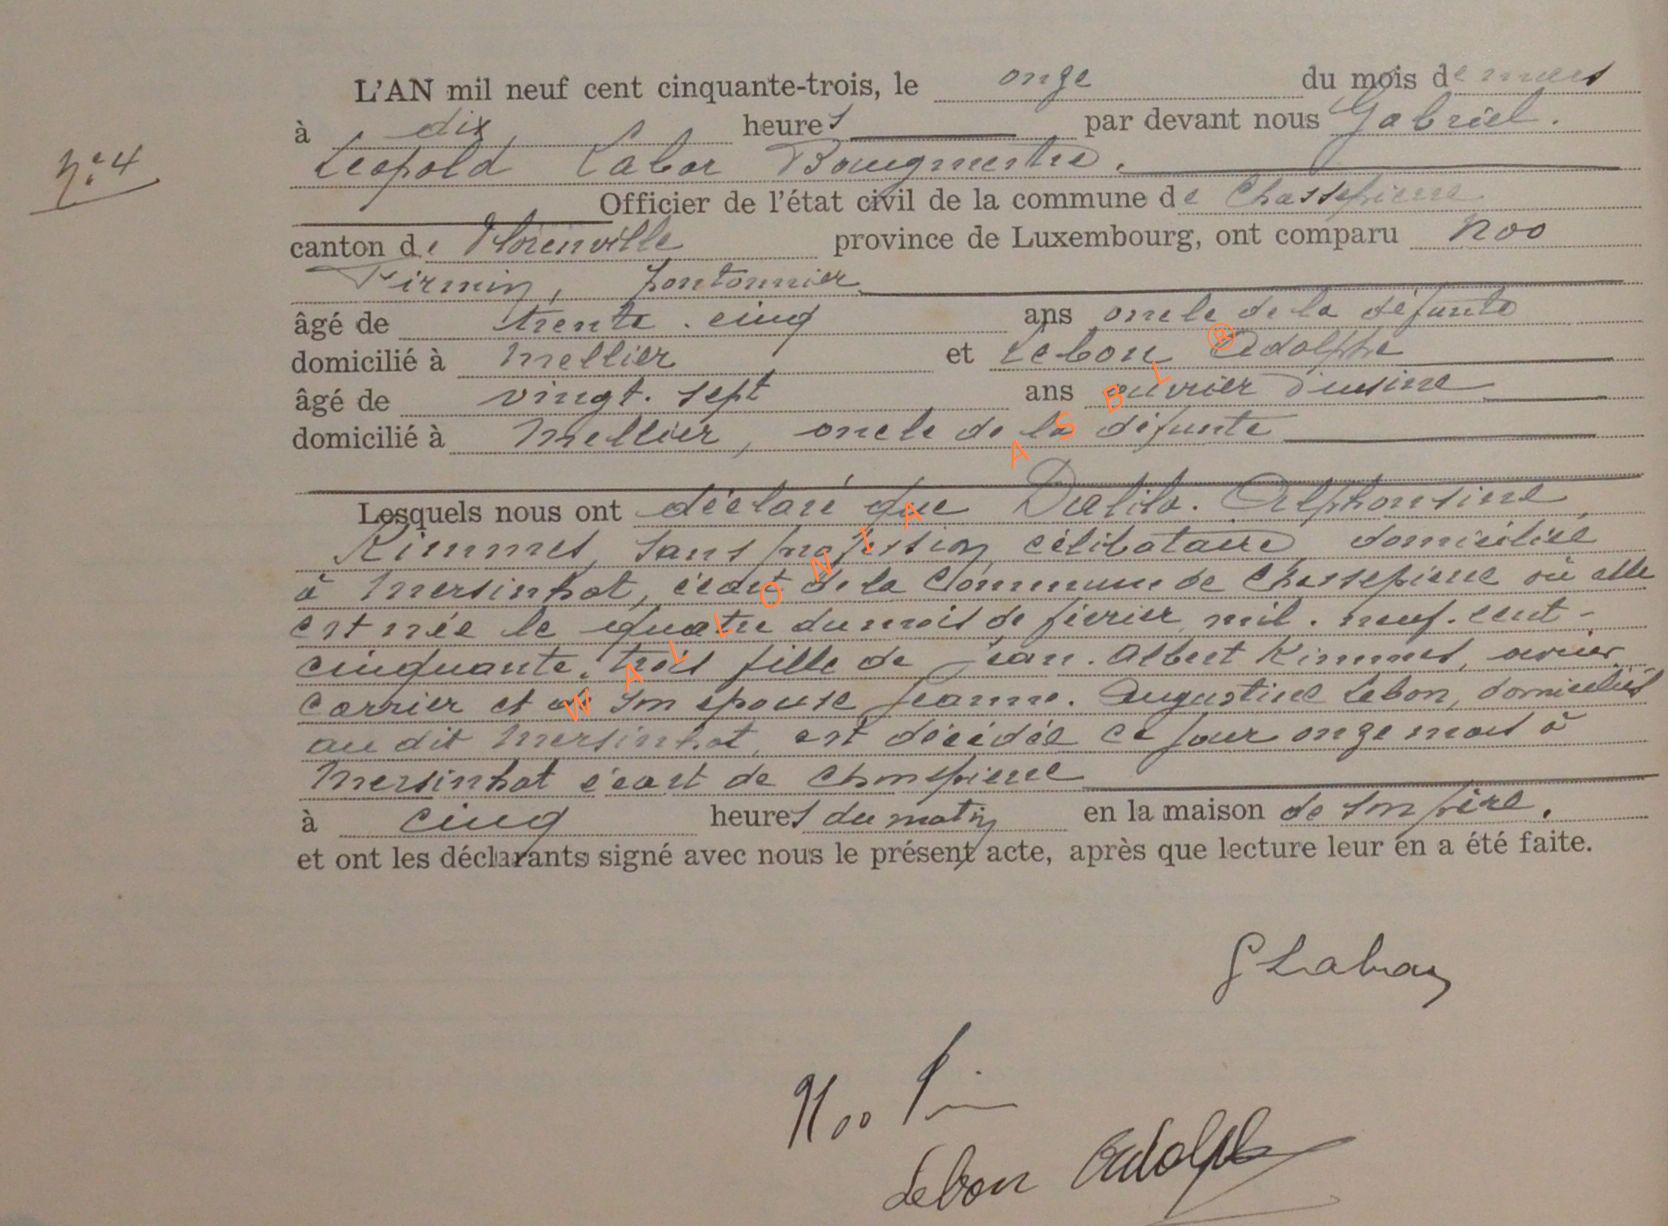 L'AN mil neuf cent cinquante-trois, le onze du mois de mars
à dix heures par devant nous Gabriel.
N° 4
Léopold Labor Bourgmestre.
Officier de l'état civil de la commune de Chassepierre
canton de Florenville province de Luxembourg, ont comparu Noo
Firmin, pontonnier
âgé de trente-cinq ans oncle de la défunte
domicilié à Mellier et Lebon Adolphe
âgé de vingt-sept ans ouvrier d'usine
domicilié à Mellier, oncle de la défunte
Lesquels nous ont déclaré que Dalila-Alphonsine,
Kimmes, sans profession célibataire domiciliée
à Mersinhat, écart de la Commune de Chassepierre où elle
est née le quatre du mois de février mil-neuf-cent-
cinquante-trois fille de Jean-Albert Kimmes, ouvrier
carrier et de son épouse Jeanne-Augustine Lebon, domiciliés
au dit Mersinhat, est décédée ce jour onze mars à
Mersinhat écart de Chassepierre
à cinq heures du matin en la maison de son père.
et ont les déclarants signé avec nous le présent acte, après que lecture leur en a été faite.
WALLONIA ASBL ®
G Labor
Noo
Lebon Adolphe